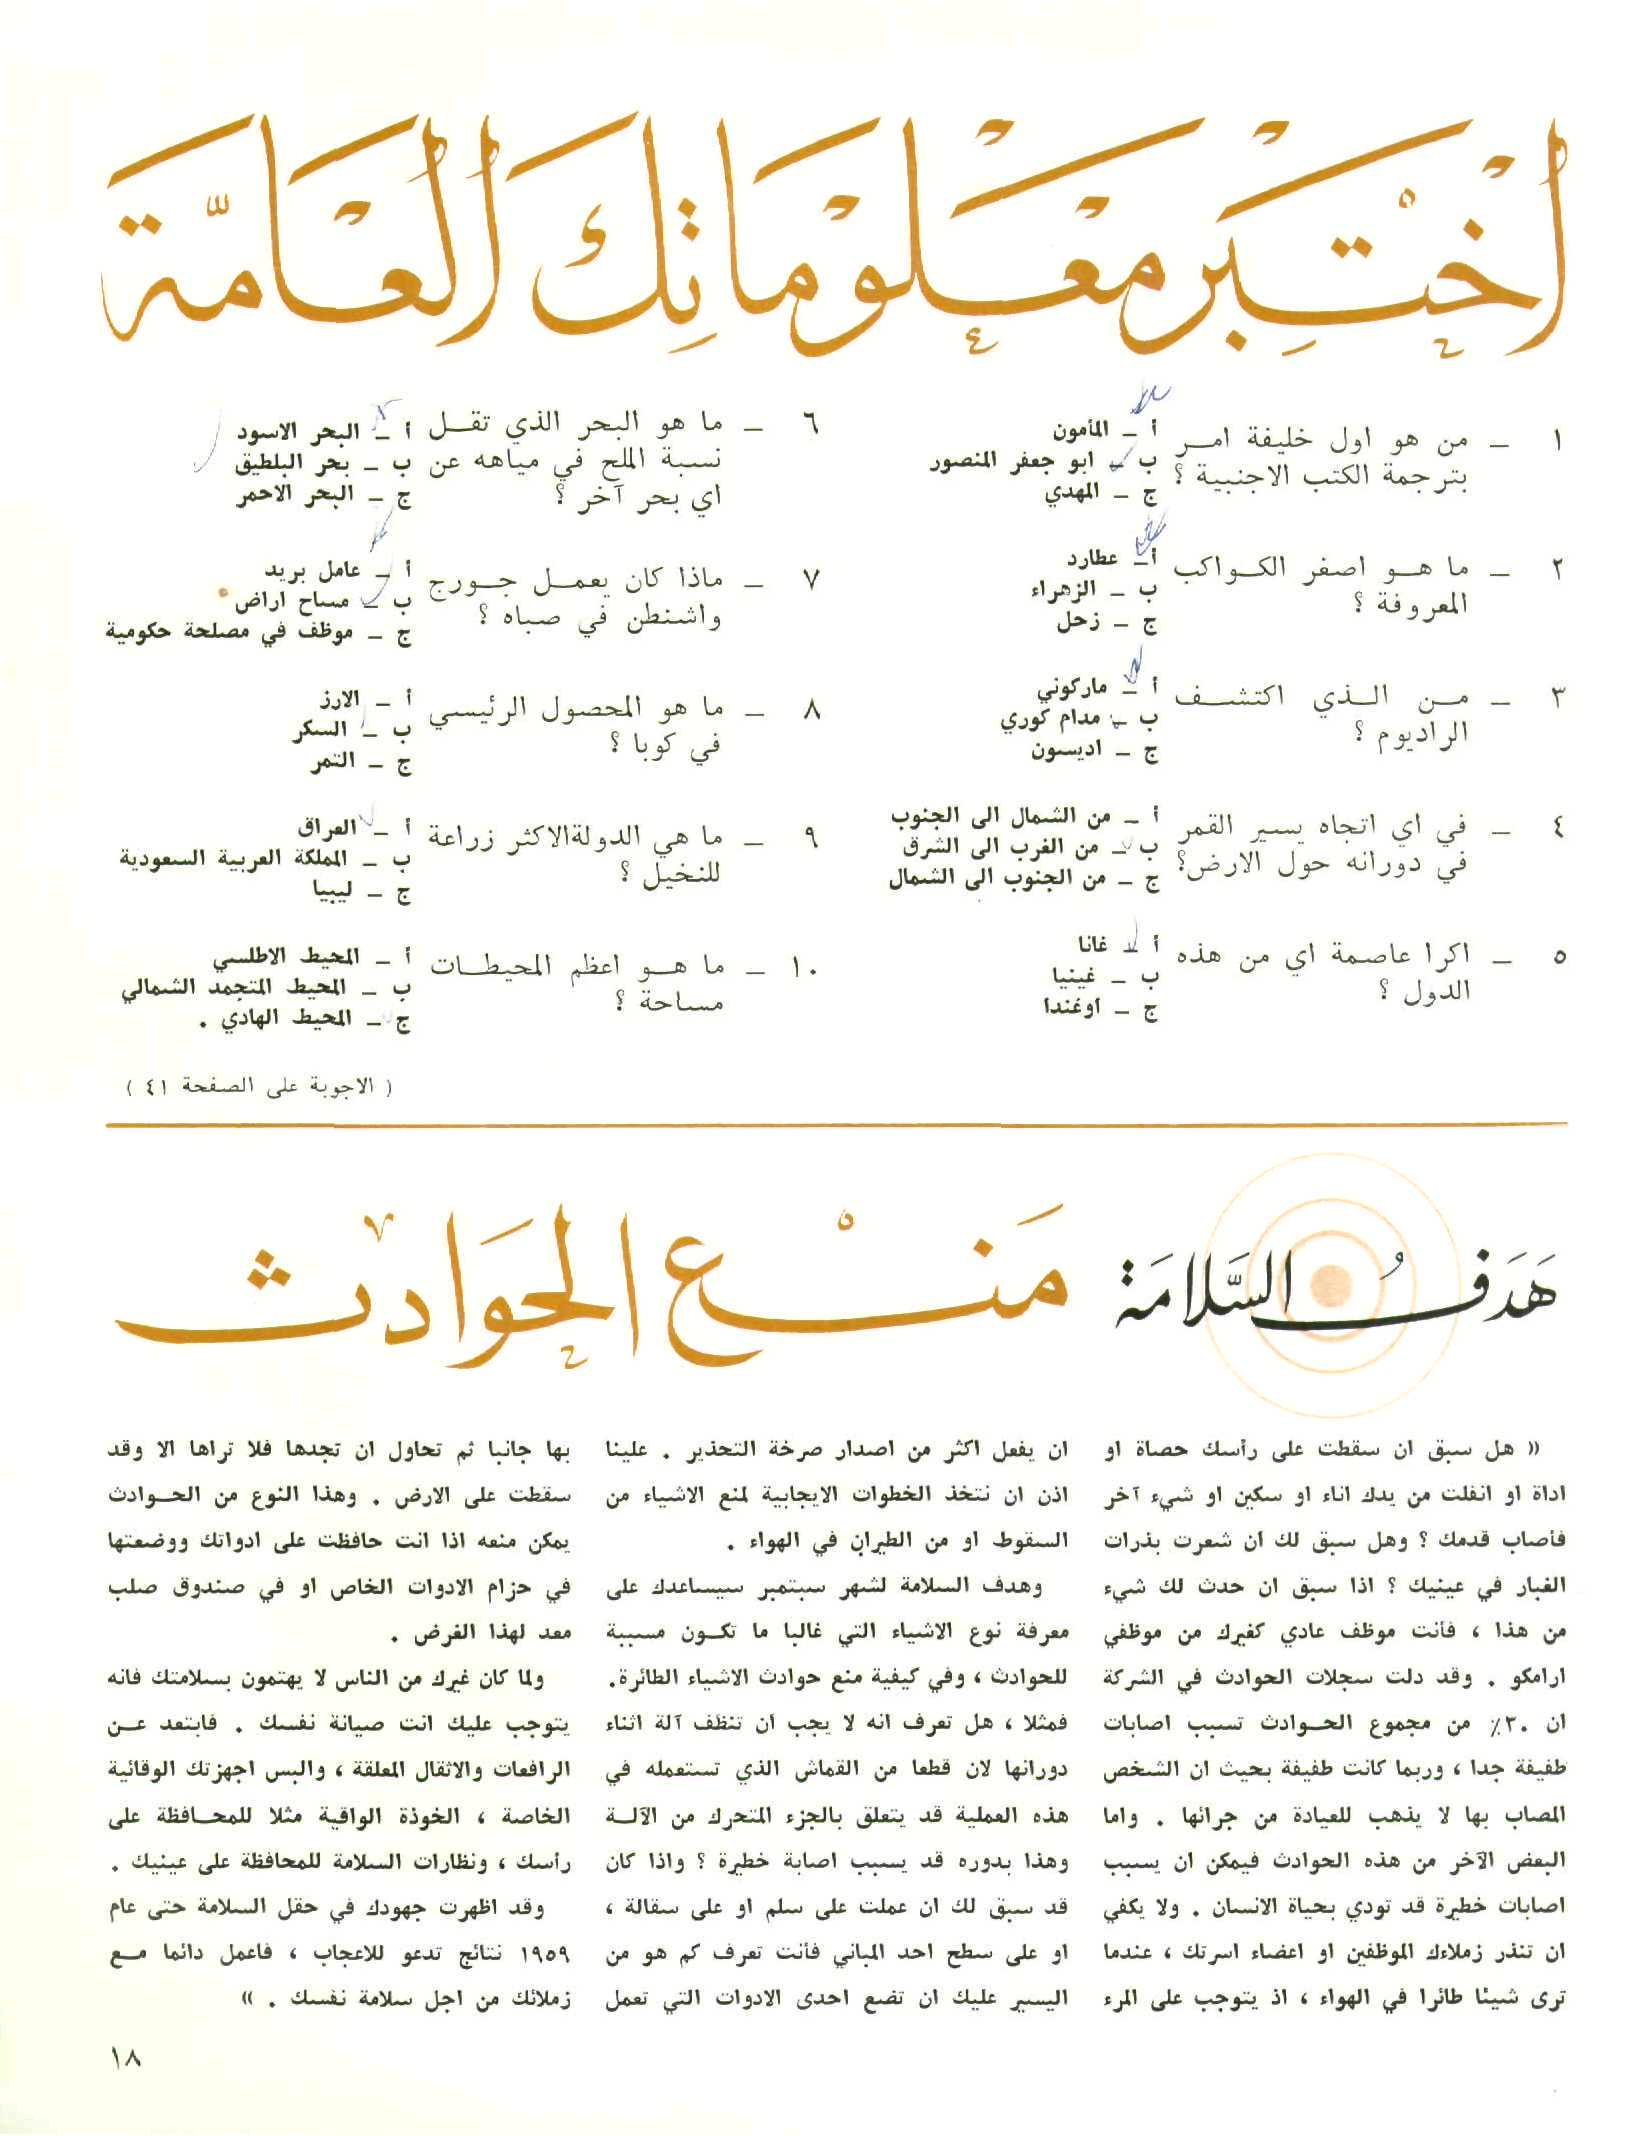 اخْتِبر مَعْلومَاتِكَ العَامَّة
١ – من هو اول خليفة امــر
بترجمة الكتب الاجنبية ؟
أ – المأمون
ب – ابو جعفر المنصور
ج – المهدي
٢ – ما هــو اصغر الكــواكب
المعروفة ؟
أ – عطارد
ب – الزهراء
ج – زحل
٣ – مــن الــذي اكتشــف
الراديوم ؟
أ – ماركوني
ب – مدام كوري
ج – اديسون
٤ – في اي اتجاه يسير القمر
في دورانه حول الارض؟
أ – من الشمال الى الجنوب
ب – من الغرب الى الشرق
ج – من الجنوب الى الشمال
٥ – اكرا عاصمة اي من هذه
الدول ؟
أ – غانا
ب – غينيا
ج – اوغندا
٦ – ما هو البحر الذي تقــل
نسبة الملح في مياهه عن
اي بحر آخر ؟
أ – البحر الاسود
ب – بحر البلطيق
ج – البحر الاحمر
٧ – ماذا كان يعمــل جــورج
واشنطن في صباه ؟
أ – عامل بريد
ب – مساح اراض
ج – موظف في مصلحة حكومية
٨ – ما هو المحصول الرئيسي
في كوبا ؟
أ – الارز
ب – السكر
ج – التمر
٩ – ما هي الدولةالاكثر زراعة
للنخيل ؟
أ – العراق
ب – المملكة العربية السعودية
ج – ليبيا
١٠ – ما هــو اعظم المحيطــات
مساحة ؟
أ – المحيط الاطلسي
ب – المحيط المتجمد الشمالي
ج – المحيط الهادي .
( الاجوبة على الصفحة ٤١ )
هَدَفُ السَّلامَة مَنْع الحَوادث
« هل سبق ان سقطت على رأسك حصاة او
اداة او انفلت من يدك اناء او سكين او شيء آخر
فأصاب قدمك ؟ وهل سبق لك ان شعرت بذرات
الغبار في عينيك ؟ اذا سبق ان حدث لك شيء
من هذا ، فأنت موظف عادي كغيرك من موظفي
ارامكو . وقد دلت سجلات الحوادث في الشركة
ان ٣٠٪ من مجموع الحــوادث تسبب اصابات
طفيفة جدا ، وربما كانت طفيفة بحيث ان الشخص
المصاب بها لا يذهب للعيادة من جرائها . واما
البعض الآخر من هذه الحوادث فيمكن ان يسبب
اصابات خطيرة قد تودي بحياة الانسان . ولا يكفي
ان تنذر زملاءك الموظفين او اعضاء اسرتك ، عندما
ترى شيئا طائرا في الهواء ، اذ يتوجب على المرء
ان يفعل اكثر من اصدار صرخة التحذير . علينا
اذن ان نتخذ الخطوات الايجابية لمنع الاشياء من
السقوط او من الطيران في الهواء .
وهدف السلامة لشهر سبتمبر سيساعدك على
معرفة نوع الاشياء التي غالبا ما تكــون مسببة
للحوادث ، وفي كيفية منع حوادث الاشياء الطائرة.
فمثلا ، هل تعرف انه لا يجب ان تنظف آلة اثناء
دورانها لان قطعا من القماش الذي تستعمله في
هذه العملية قد يتعلق بالجزء المتحرك من الآلــة
وهذا بدوره قد يسبب اصابة خطيرة ؟ واذا كان
قد سبق لك ان عملت على سلم او على سقالة ،
او على سطح احد المباني فأنت تعرف كم هو من
اليسير عليك ان تضع احدى الادوات التي تعمل
بها جانبا ثم تحاول ان تجدها فلا تراها الا وقد
سقطت على الارض . وهذا النوع من الحــوادث
يمكن منعه اذا انت حافظت على ادواتك ووضعتها
في حزام الادوات الخاص او في صندوق صلب
معد لهذا الغرض .
ولما كان غيرك من الناس لا يهتمون بسلامتك فانه
يتوجب عليك انت صيانة نفسك . فابتعد عــن
الرافعات والاثقال المعلقة ، والبس اجهزتك الوقائية
الخاصة ، الخوذة الواقية مثلا للمحــافظة على
رأسك ، ونظارات السلامة للمحافظة على عينيك .
وقد اظهرت جهودك في حقل السلامة حتى عام
١٩٥٩ نتائج تدعو للاعجاب ، فاعمل دائما مــع
زملائك من اجل سلامة نفسك . »
١٨